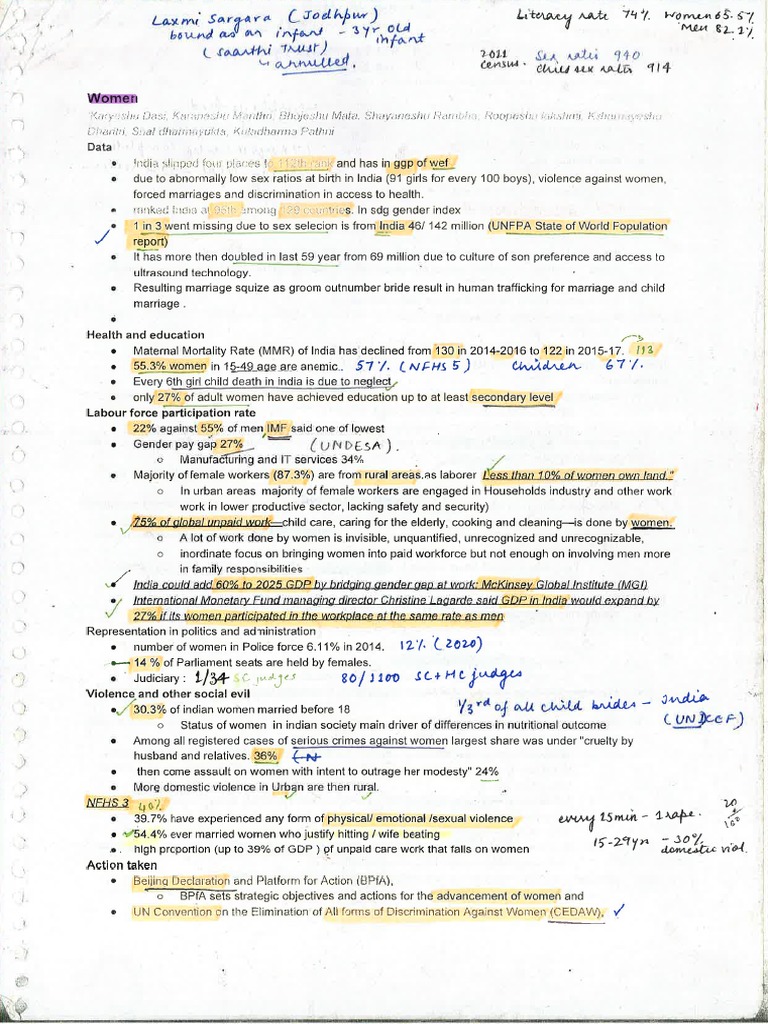 Laxmi Sargara (Jodhpur)
bound as an infant - 3yr old infant
(Saarthi Trust)
↳ annulled.
Literacy rate 74% Women 65.5%
Men 82.1%
2011 census. Sex ratio 940
Child sex ratio 914
Women
'Karyeshu Dasi, Karaneshu Manthri, Bhojeshu Mata, Shayaneshu Rambha, Roopeshu lakshmi, Kshamayeshu
Dharitri, Shat dharmayukta, Kuladharma Pathni
Data
• India slipped four places to 112th rank and has in ggp of wef
• due to abnormally low sex ratios at birth in India (91 girls for every 100 boys), violence against women,
forced marriages and discrimination in access to health.
• ranked India at 95th among 129 countries. In sdg gender index
• 1 in 3 went missing due to sex selecion is from India 46/ 142 million (UNFPA State of World Population
report)
• It has more then doubled in last 59 year from 69 million due to culture of son preference and access to
ultrasound technology.
• Resulting marriage squize as groom outnumber bride result in human trafficking for marriage and child
marriage .
•
Health and education
• Maternal Mortality Rate (MMR) of India has declined from 130 in 2014-2016 to 122 in 2015-17. 113
• 55.3% women in 15-49 age are anemic.. 57% (NFHS 5) Children 67%.
• Every 6th girl child death in india is due to neglect
• only 27% of adult women have achieved education up to at least secondary level
Labour force participation rate
• 22% against 55% of men IMF said one of lowest
• Gender pay gap 27% (UNDESA).
o Manufacturing and IT services 34%
• Majority of female workers (87.3%) are from rural areas.as laborer Less than 10% of women own land."
o In urban areas majority of female workers are engaged in Households industry and other work
work in lower productive sector, lacking safety and security)
• 75% of global unpaid work—child care, caring for the elderly, cooking and cleaning—is done by women.
o A lot of work done by women is invisible, unquantified, unrecognized and unrecognizable,
o inordinate focus on bringing women into paid workforce but not enough on involving men more
in family responsibilities
• India could add 60% to 2025 GDP by bridging gender gap at work: McKinsey Global Institute (MGI)
• International Monetary Fund managing director Christine Lagarde said GDP in India would expand by
27% if its women participated in the workplace at the same rate as men
Representation in politics and administration
• number of women in Police force 6.11% in 2014. 12% (2020)
• 14 % of Parliament seats are held by females.
• Judiciary : 1/34 SC judges 80/1100 SC+HC judges
Violence and other social evil
• 30.3% of indian women married before 18 1/3rd of all child brides - India
(UNICEF)
o Status of women in indian society main driver of differences in nutritional outcome
• Among all registered cases of serious crimes against women largest share was under "cruelty by
husband and relatives. 36%
• then come assault on women with intent to outrage her modesty" 24%
• More domestic violence in Urban are then rural.
NFHS 3 40%
• 39.7% have experienced any form of physical/ emotional /sexual violence every 15min - 1 rape.
• 54.4% ever married women who justify hitting / wife beating 15-29yr - 30% domestic viol.
• high prportion (up to 39% of GDP ) of unpaid care work that falls on women
Action taken
• Beijing Declaration and Platform for Action (BPfA),
o BPfA sets strategic objectives and actions for the advancement of women and
• UN Convention on the Elimination of All forms of Discrimination Against Women (CEDAW).